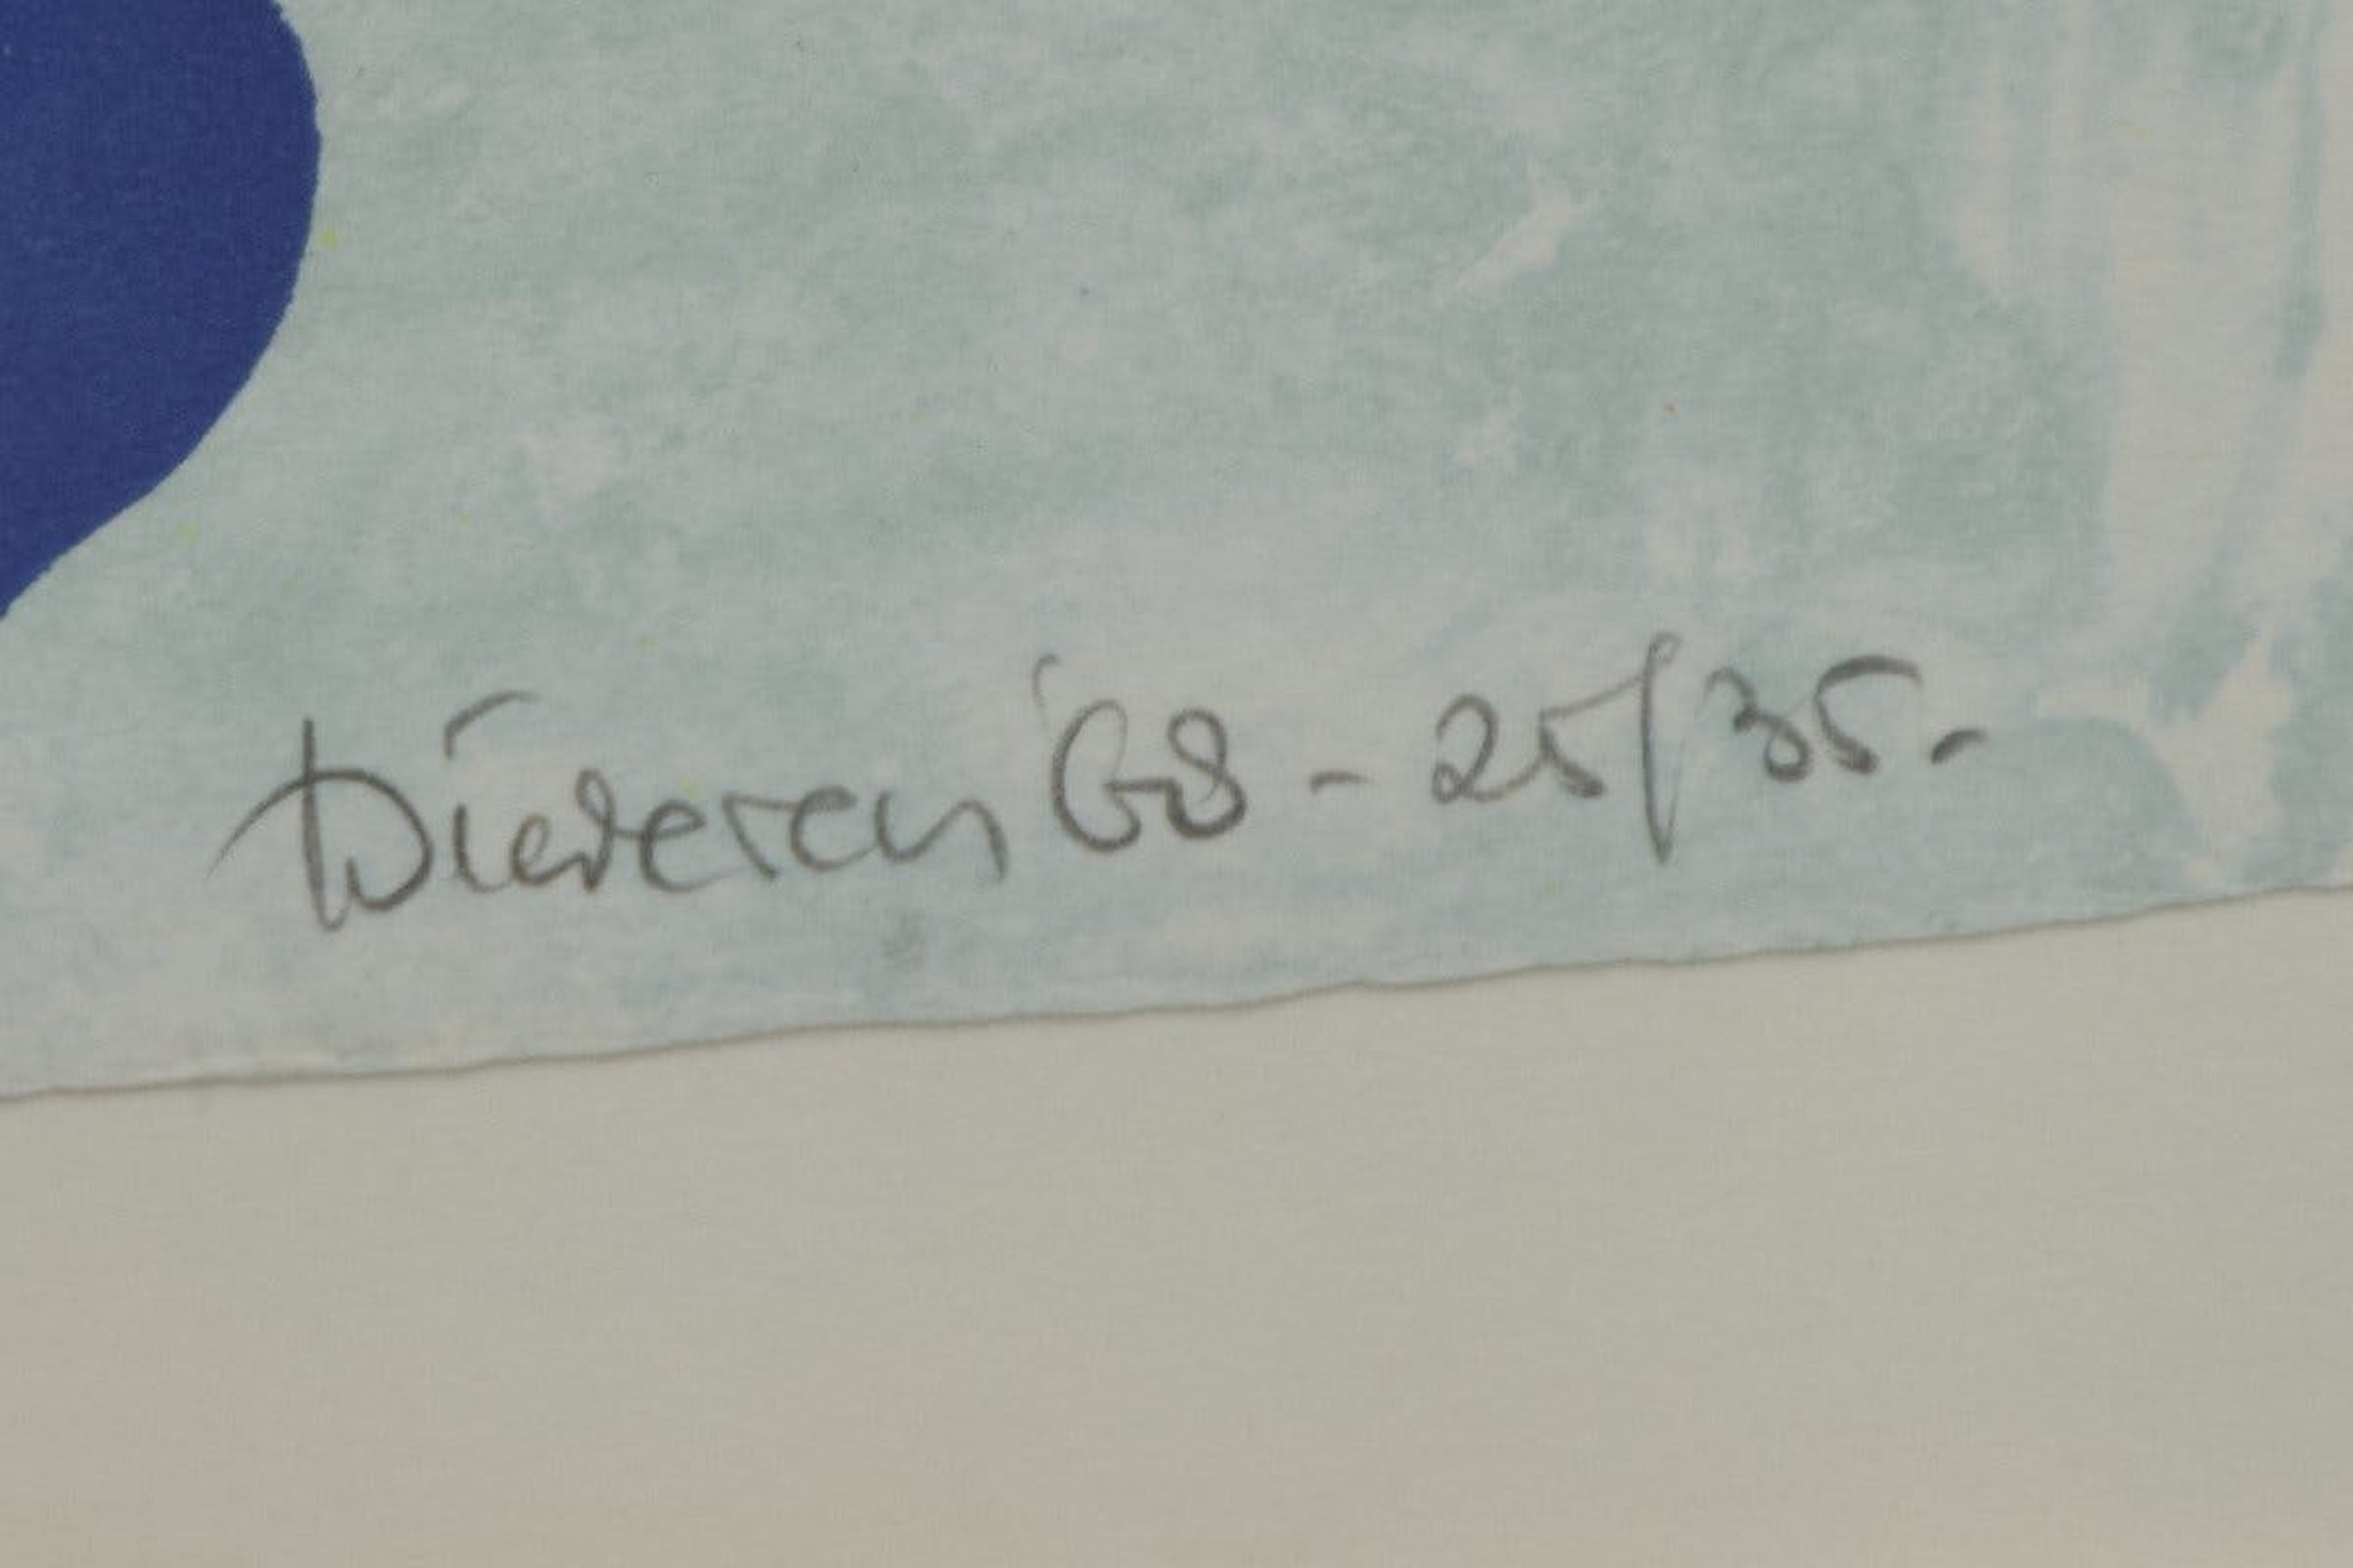 Diederen '68 - 25/35.-